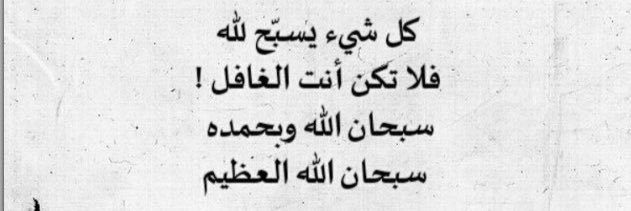 كل شيء يسبّح لله
فلا تكن أنت الغافل !
سبحان الله وبحمده
سبحان الله العظيم